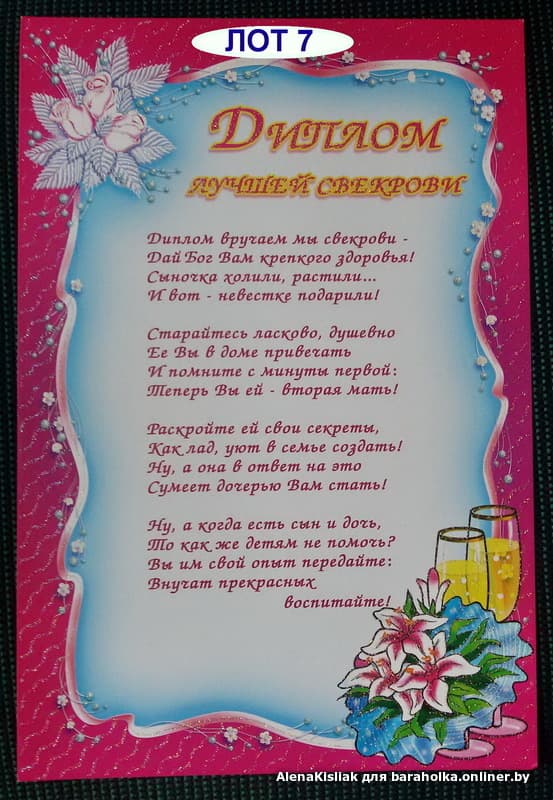 ЛОТ 7
ДИПЛОМ
ЛУЧШЕЙ СВЕКРОВИ
Диплом вручаем мы свекрови -
Дай Бог Вам крепкого здоровья!
Сыночка холили, растили...
И вот - невестке подарили!
Старайтесь ласково, душевно
Ее Вы в доме привечать
И помните с минуты первой:
Теперь Вы ей - вторая мать!
Раскройте ей свои секреты,
Как лад, уют в семье создать!
Ну, а она в ответ на это
Сумеет дочерью Вам стать!
Ну, а когда есть сын и дочь,
То как же детям не помочь?
Вы им свой опыт передайте:
Внучат прекрасных
воспитайте!
AlenaKisliak для baraholka.onliner.by